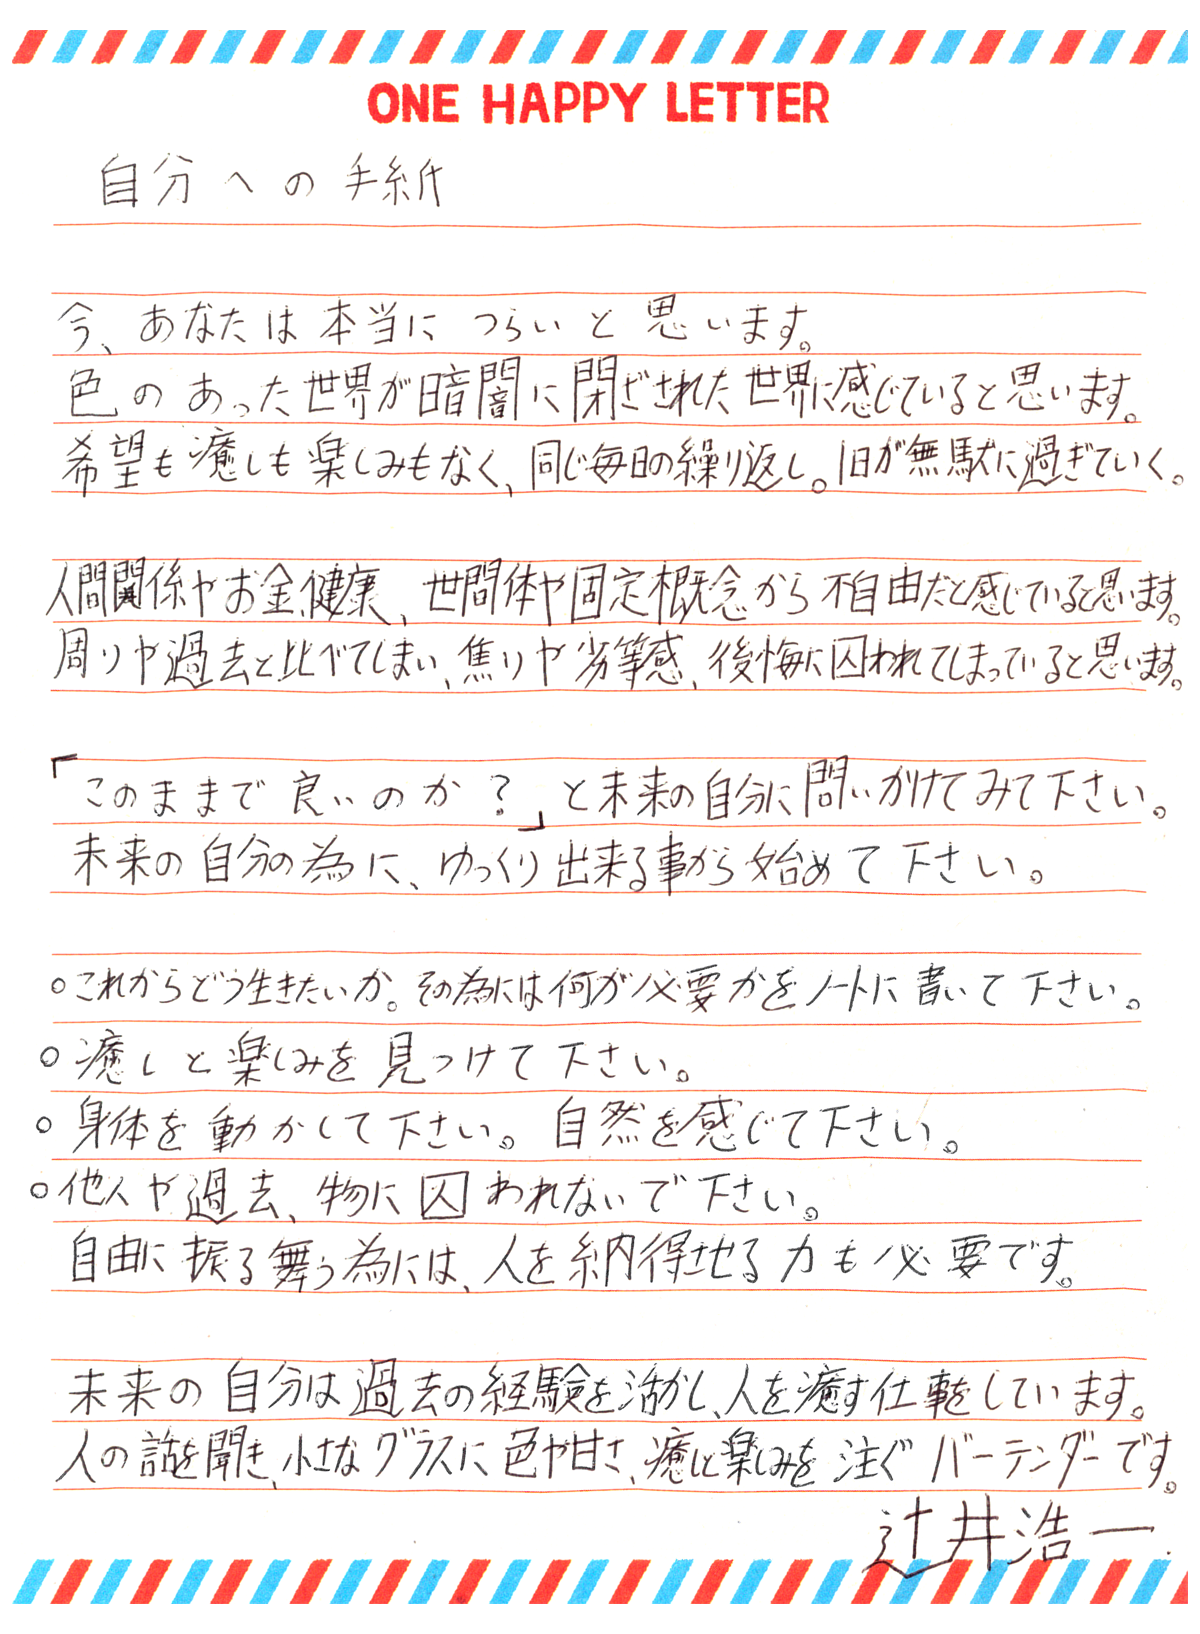 ONE HAPPY LETTER
自分への手紙
今、あなたは本当につらいと思います。
色のあった世界が暗闇に閉ざされた世界に感じていると思います。
希望も癒しも楽しみもなく、同じ毎日の繰り返し。1日が無駄に過ぎていく。
人間関係やお金、健康、世間体や固定概念から不自由だと感じていると思います。
周りや過去と比べてしまい、焦りや劣等感、後悔に囚われてしまっていると思います。
「このままで良いのか？」と未来の自分に問いかけてみて下さい。
未来の自分の為に、ゆっくり出来る事から始めて下さい。
○これからどう生きたいか。その為には何が必要かをノートに書いて下さい。
○癒しと楽しみを見つけて下さい。
○身体を動かして下さい。自然を感じて下さい。
○他人や過去、物に囚われないで下さい。
自由に振る舞う為には、人を納得させる力も必要です。
未来の自分は過去の経験を活かし、人を癒す仕事をしています。
人の話を聞き、小さなグラスに色や甘さ、癒しと楽しみを注ぐバーテンダーです。
辻井浩一